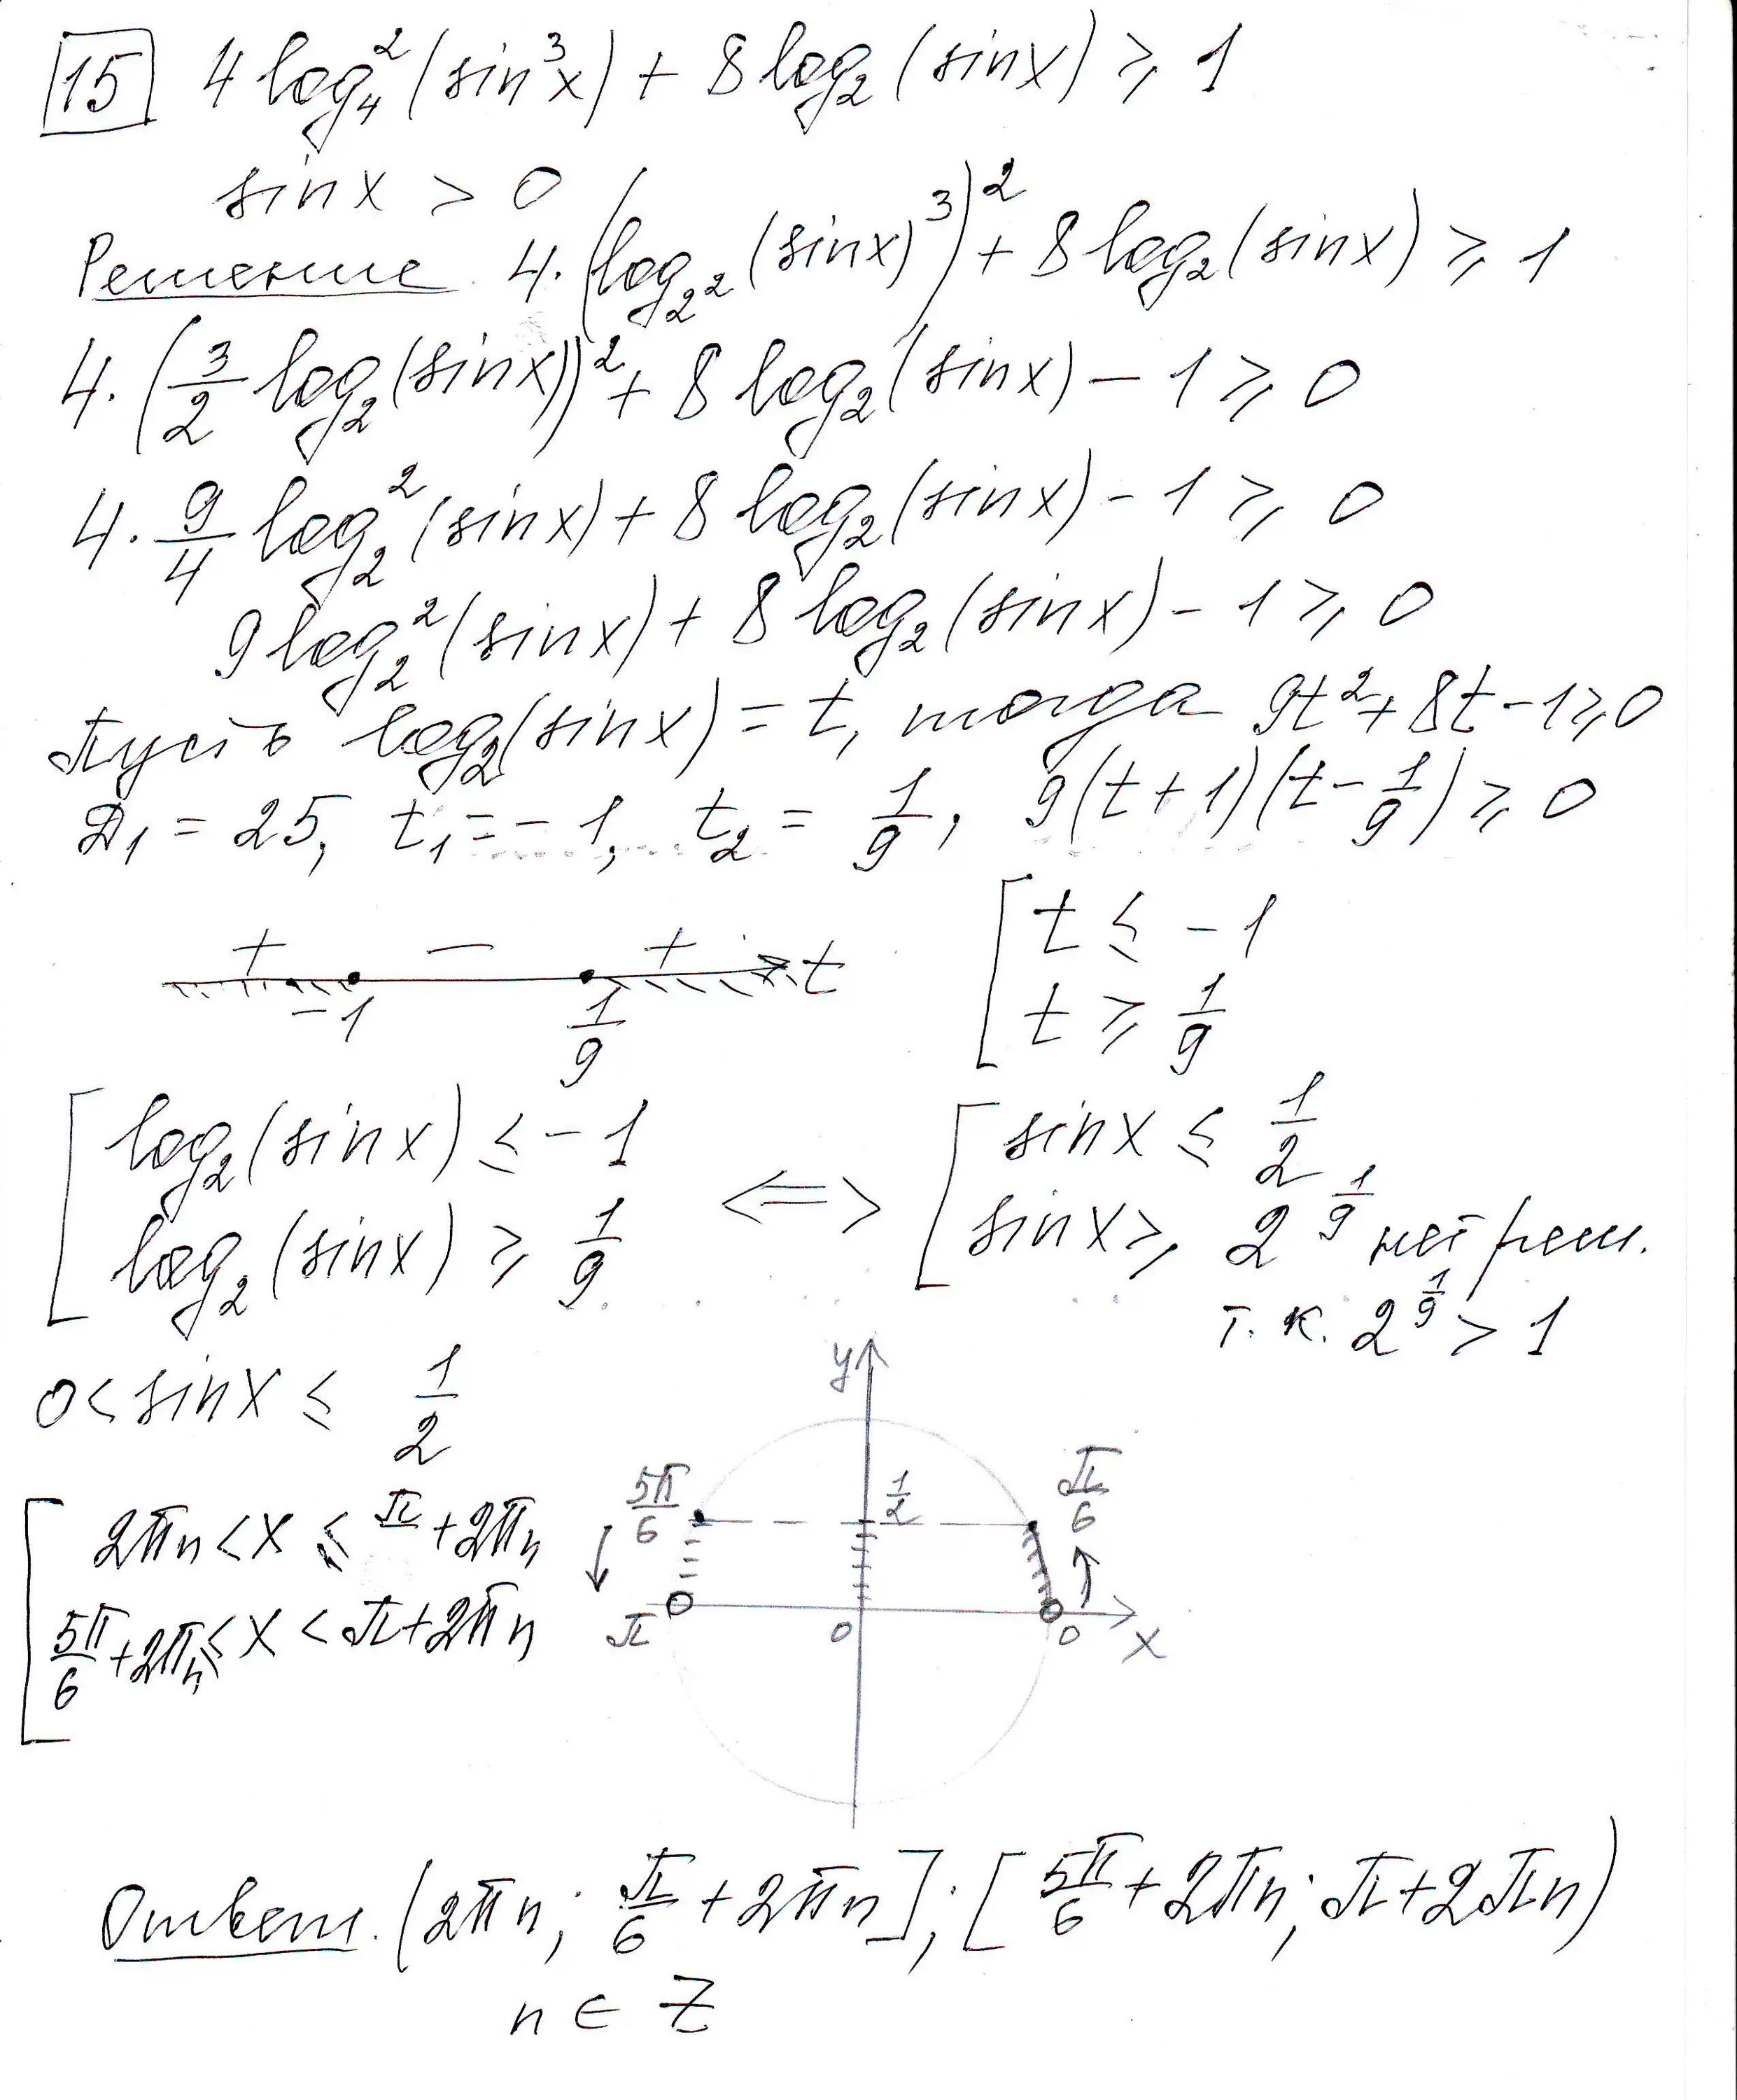 15 4 log₄² (sin³x) + 8 log₂ (sinx) ⩾ 1
sinx > 0
Решение. 4·(log₂² (sinx)³)² + 8 log₂ (sinx) ⩾ 1
4·(3/2 log₂ (sinx))² + 8 log₂ (sinx) − 1 ⩾ 0
4·9/4 log₂² (sinx) + 8 log₂ (sinx) − 1 ⩾ 0
9 log₂² (sinx) + 8 log₂ (sinx) − 1 ⩾ 0
Пусть log₂(sinx) = t, тогда 9t² + 8t − 1 ⩾ 0
Д₁ = 25, t₁ = −1, t₂ = 1/9, 9(t+1)(t − 1/9) ⩾ 0
+ − + t
−1 1/9
[ t ⩽ −1
t ⩾ 1/9
[ log₂(sinx) ⩽ −1
log₂(sinx) ⩾ 1/9
<=> [ sinx ⩽ 1/2
sinx ⩾ 2^(1/9) нет реш.
т. к. 2^(1/9) > 1
0 < sinx ⩽ 1/2
[ 2πn < x ⩽ π + 2πn
5π/6 + 2πn ⩽ x < π + 2πn
y
5π/6 1/2 π/6
π 0 0 x
Ответ. (2πn; π/6 + 2πn]; [5π/6 + 2πn; π + 2πn)
n ∈ Z